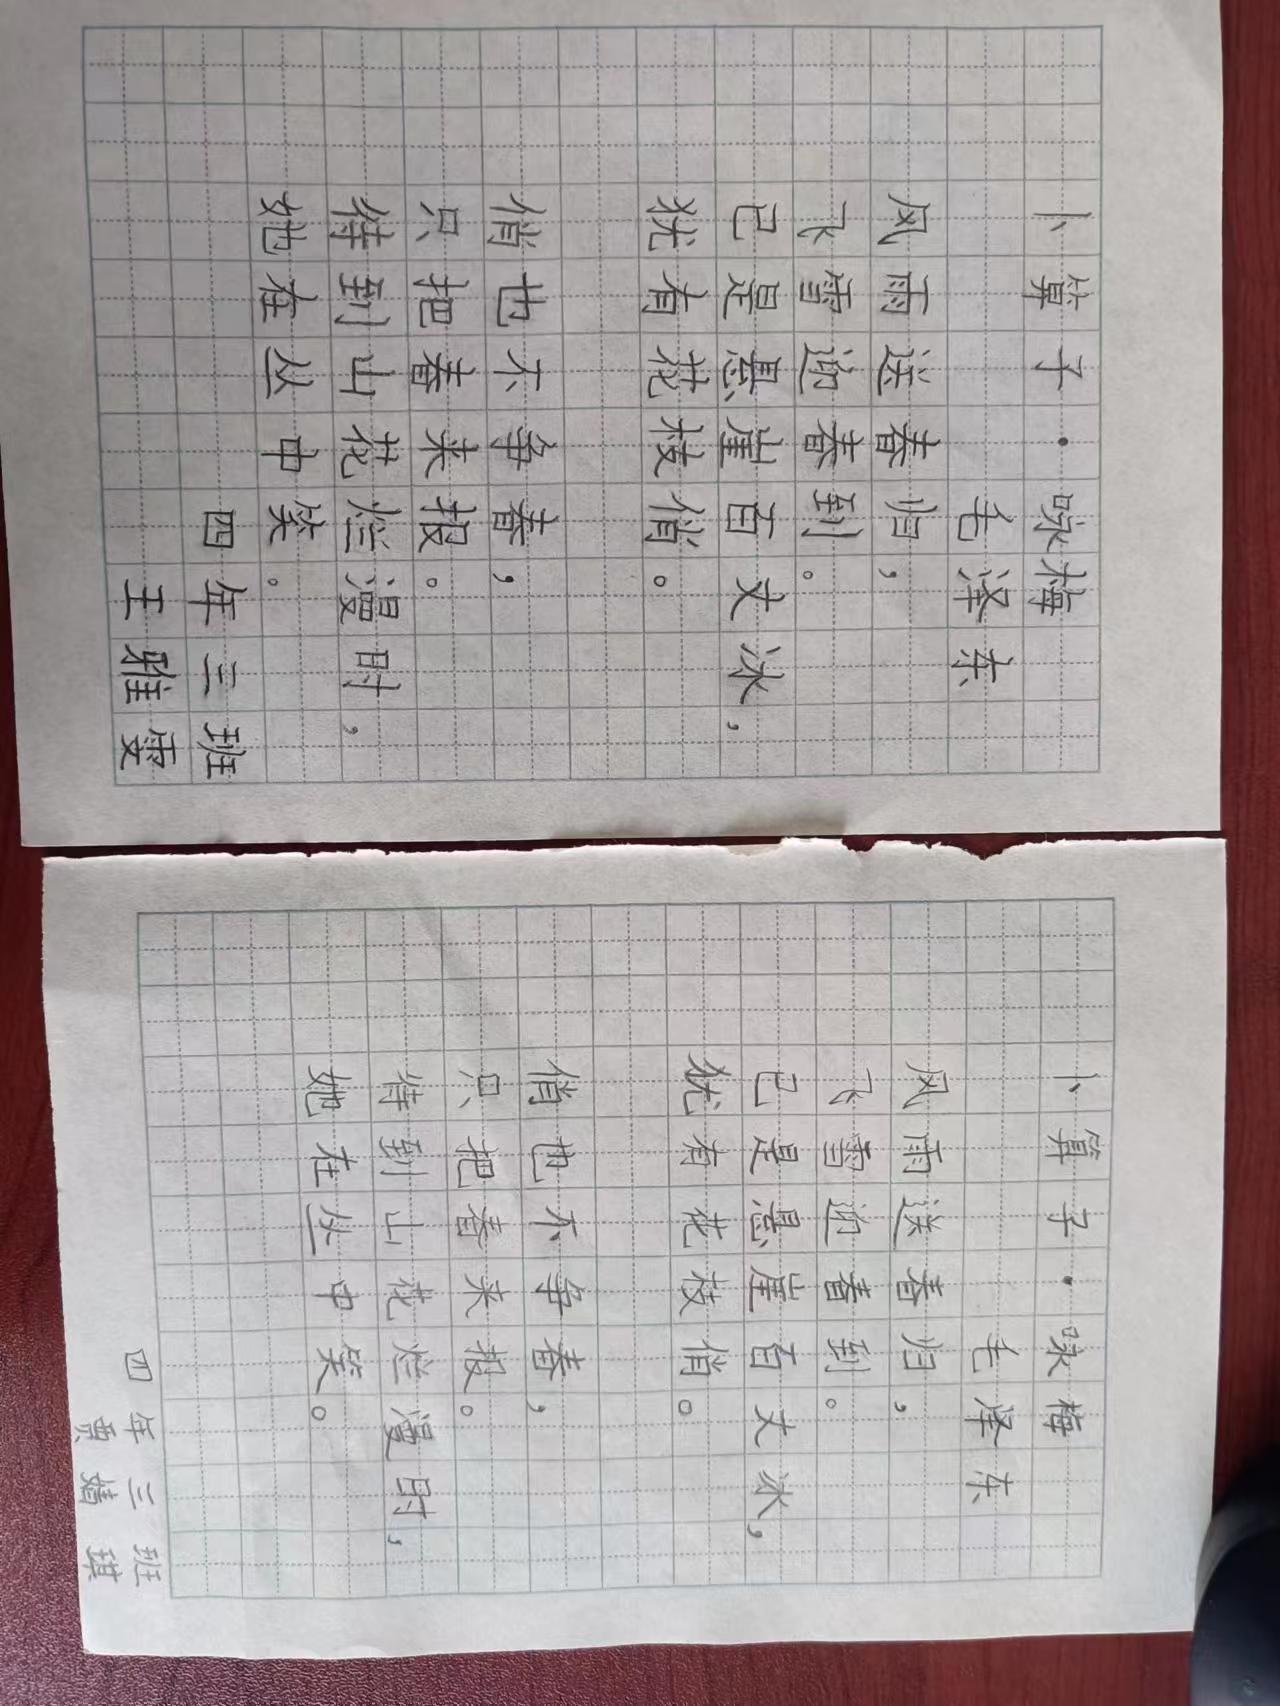 卜算子·咏梅
毛泽东
风雨送春归，
飞雪迎春到。
已是悬崖百丈冰，
犹有花枝俏。
俏也不争春，
只把春来报。
待到山花烂漫时，
她在丛中笑。
四年三班
王雅雯
卜算子·咏梅
毛泽东
风雨送春归，
飞雪迎春到。
已是悬崖百丈冰，
犹有花枝俏。
俏也不争春，
只把春来报。
待到山花烂漫时，
她在丛中笑。
四年三班
贾婧琪